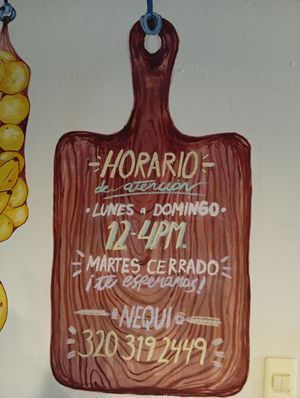 HORARIO
de atención
• LUNES a DOMINGO •
12-4PM.
MARTES CERRADO
¡te esperamos!
NEQUI
320 319 2449